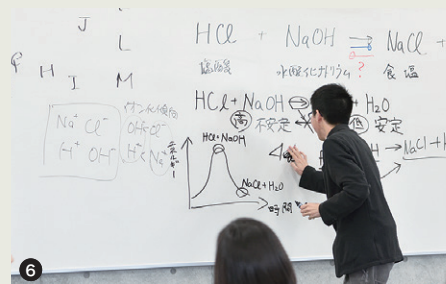 J
L
F H I M
HCl + NaOH ⇌ NaCl +
塩酸 水酸化ナトリウム ? 食塩
HCl + NaOH → H2O
高 不安定 低 安定
Na+ Cl-
H+ OH-
イオン化傾向
OH- Cl-
H+ < Na+
エネルギー
HCl + NaOH
NaCl + H2O
時間
→ NaCl + H
6